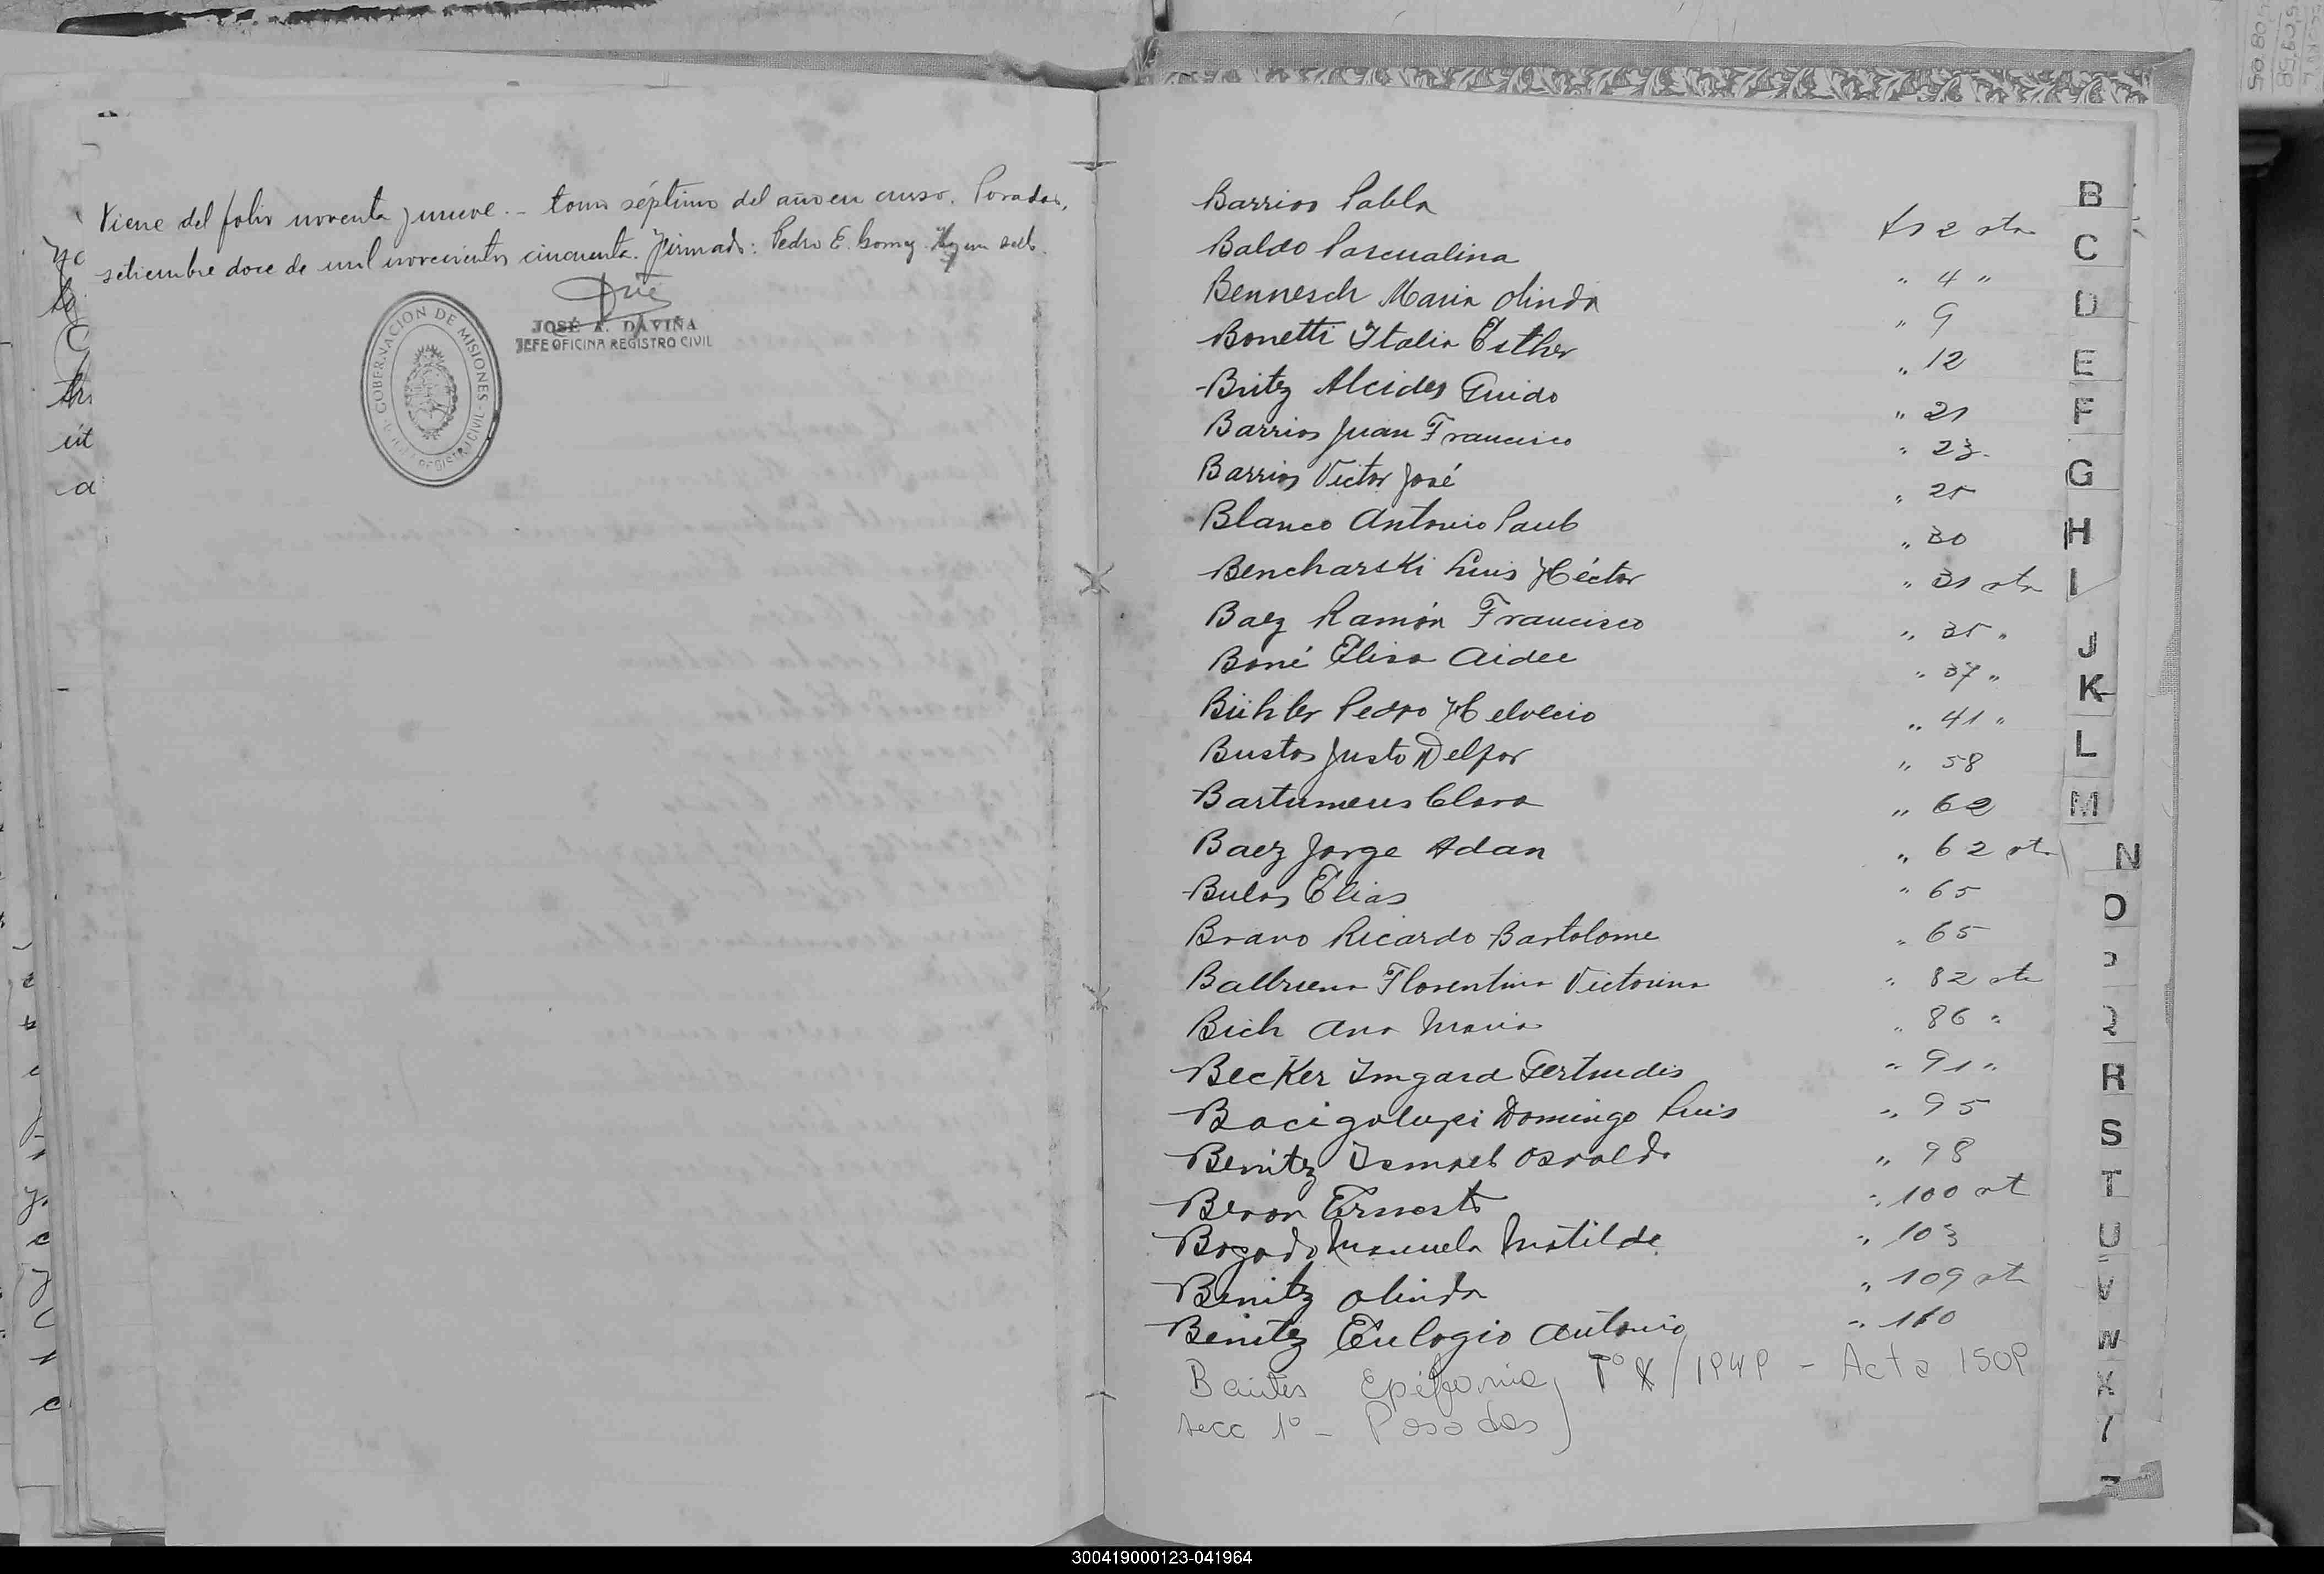 Viene del folio noventa y nueve. - tomo séptimo del año en curso. Posadas,
setiembre doce de mil novecientos cincuenta. Firmado: Pedro E. Gomez. Hay un sello.
JOSÉ A. DAVIÑA
JEFE OFICINA REGISTRO CIVIL
GOBERNACION DE MISIONES - REGISTRO CIVIL
Barrios Pabla fs 2 vta
Baldo Pascualina " 4 "
Bennesch Maria Olinda " 9
Bonetti Italia Esther " 12
Britez Alcides Guido " 21
Barrios Juan Francisco " 23
Barrios Victor José " 25
Blanco Antonio Paulo " 30
Bencharski Luis Héctor " 31 vta
Baez Ramón Francisco " 35 "
Boné Elisa Aidee " 37 "
Bühler Pedro Helvecio " 41 "
Bustos Justo Delfor " 58
Bartumeus Clara " 62
Baez Jorge Adan " 62 vta
Bulos Elias " 65
Bravo Ricardo Bartolome " 65
Balbuena Florentina Victorina " 82 vta
Bich Ana Maria " 86 "
Becker Imgard Gertrudis " 91 "
Bacigalupi Domingo Luis " 95
Benitez Ismael Osvaldo " 98
Beron Ernesto " 100 vt
Bogado Manuela Matilde " 103
Benitez Olinda " 109 vta
Benitez Eulogio Antonio " 110
Epifania T° X/1949 - Acta 1509
secc 1° - Posadas
B
C
D
E
F
G
H
I
J
K
L
M
N
O
R
S
T
U
V
W
X
300419000123-041964